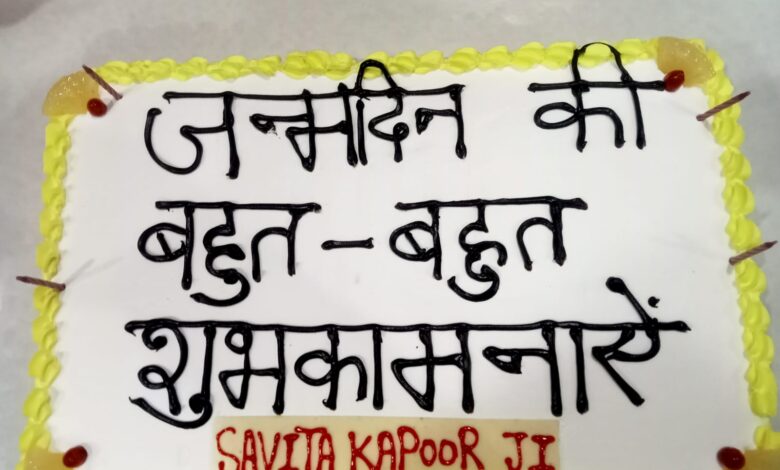 जन्मदिन की
बहुत - बहुत
शुभकामनाएं
SAVITA KAPOOR JI